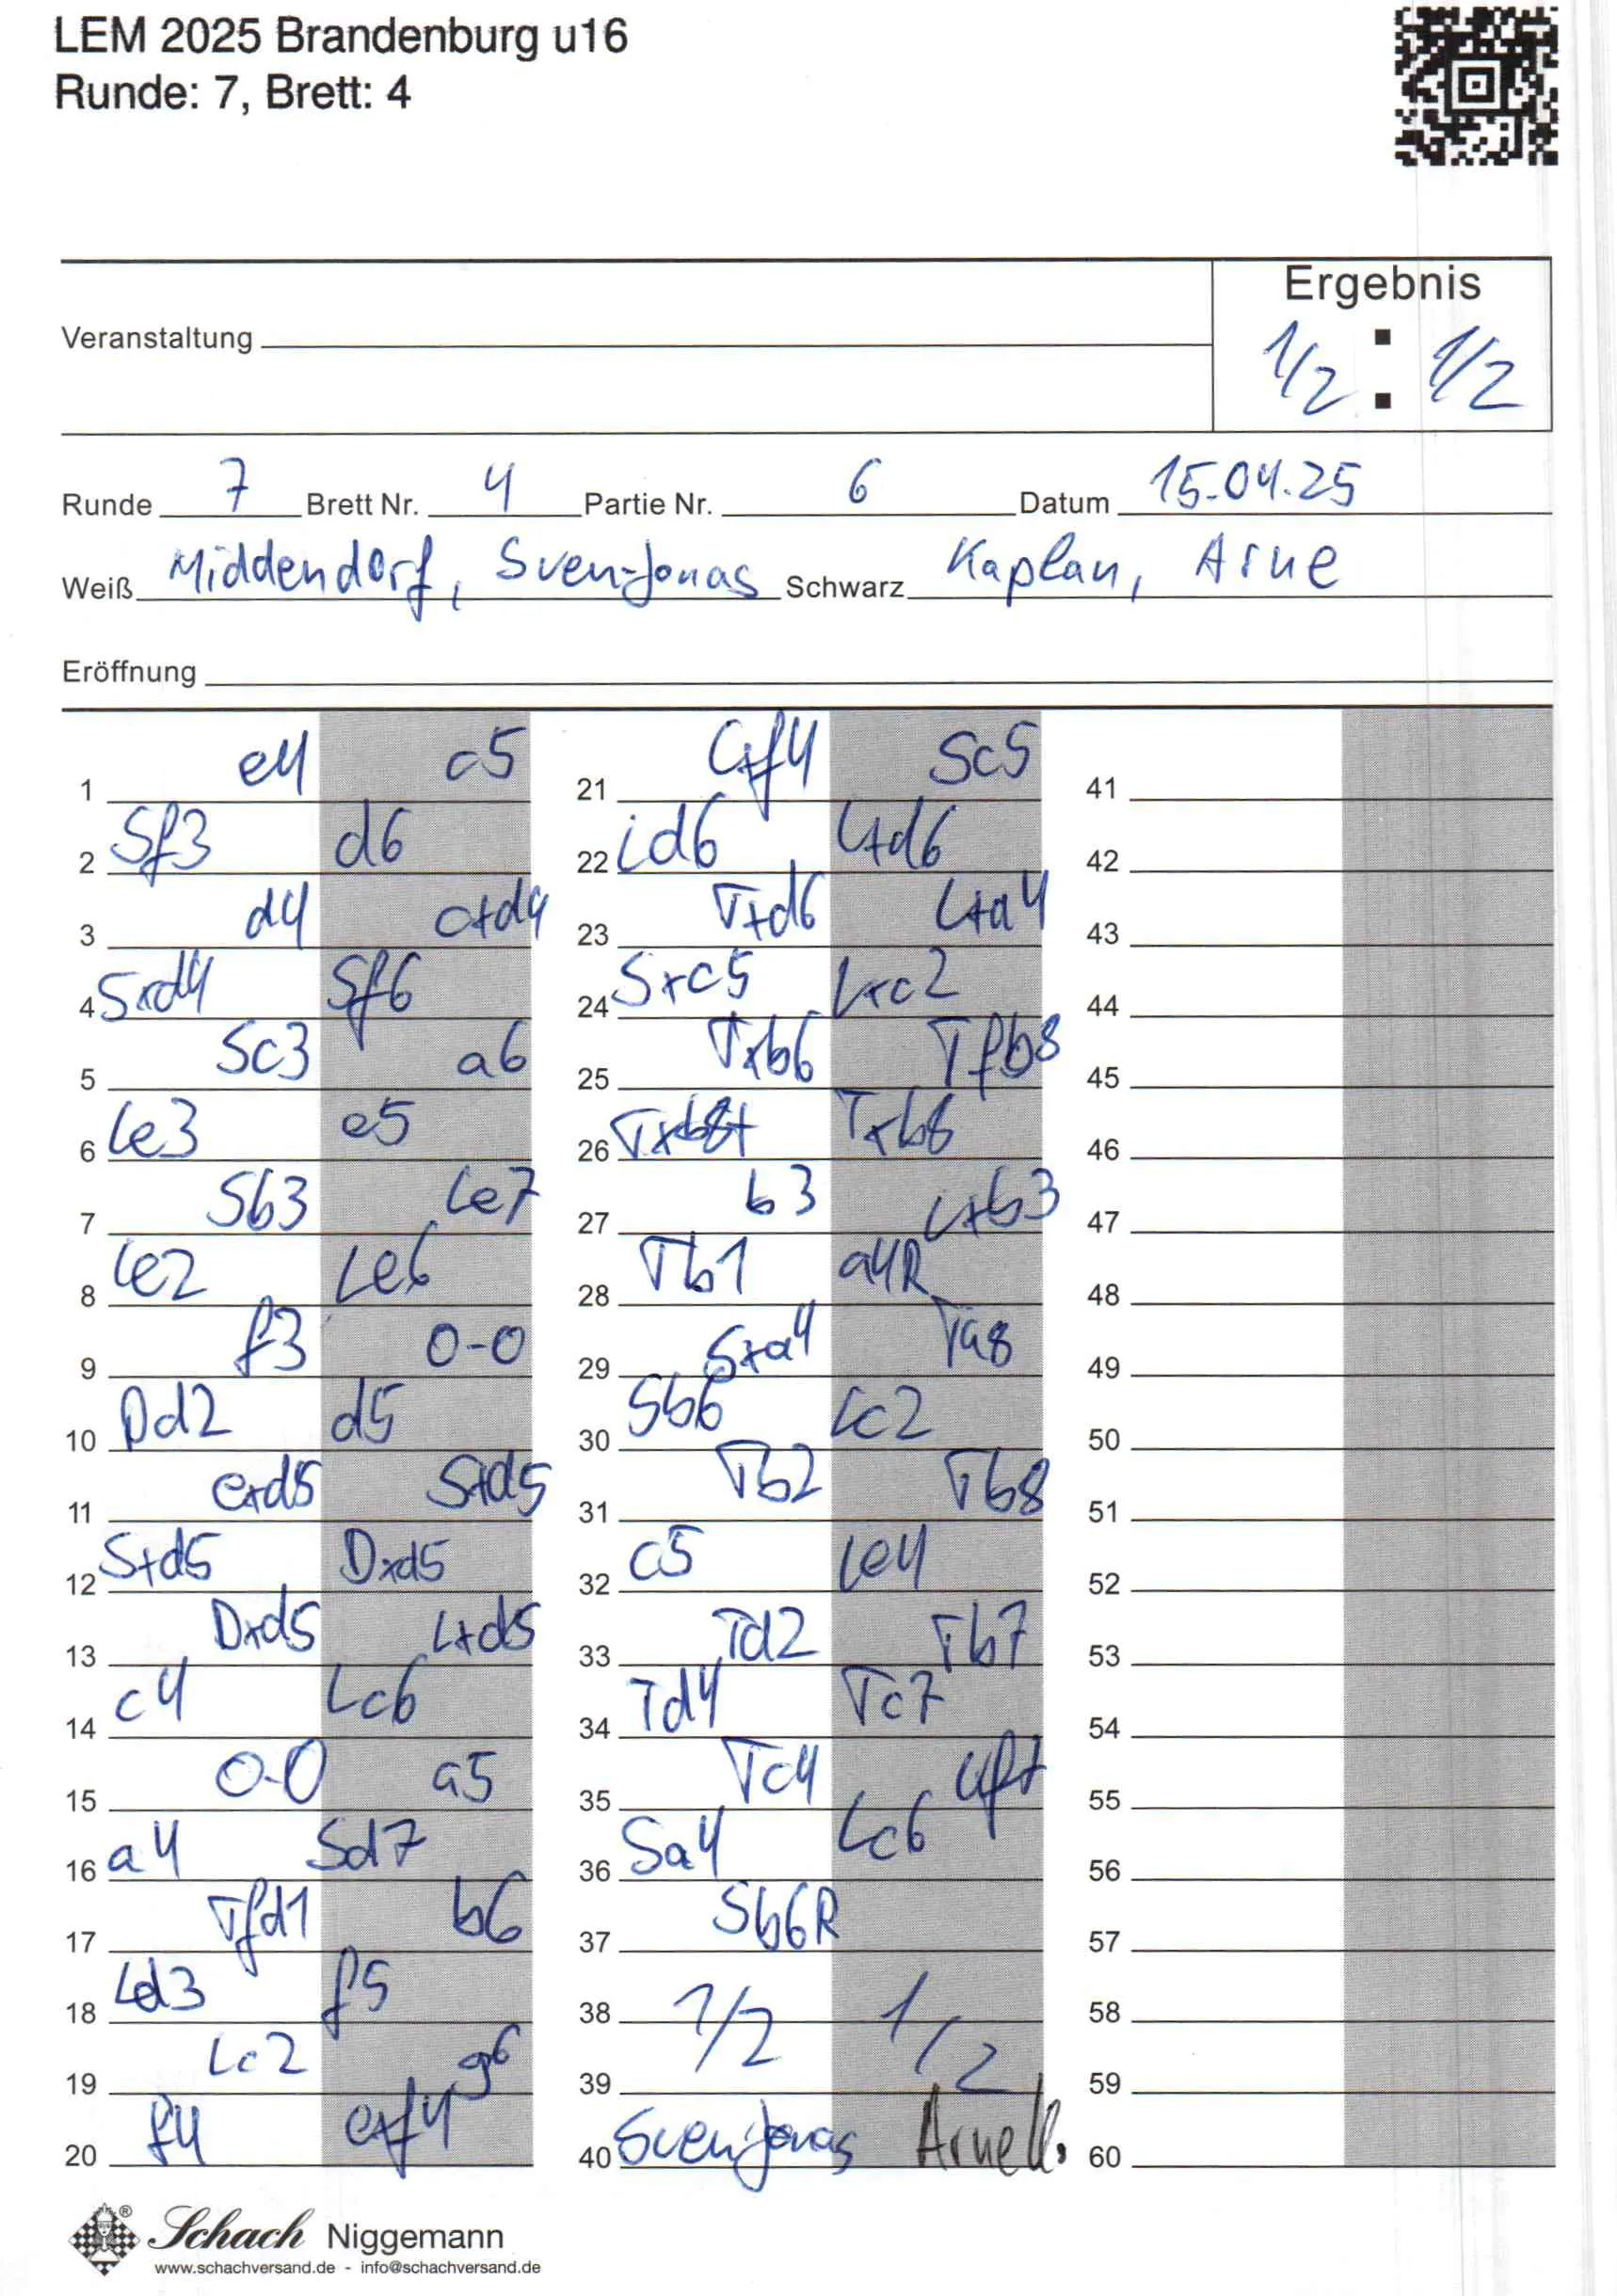 LEM 2025 Brandenburg u16
Runde: 7, Brett: 4
Ergebnis
Veranstaltung
1/2 : 1/2
Runde 7 Brett Nr. 4 Partie Nr. 6 Datum 15.04.25
Weiß Middendorf, Sven-Jonas Schwarz Kaplan, Arne
Eröffnung
1 e4 c5
2 Sf3 d6
3 d4 cxd4
4 Sxd4 Sf6
5 Sc3 a6
6 Le3 e5
7 Sb3 Le7
8 Le2 Le6
9 f3 0-0
10 Dd2 d5
11 exd5 Sxd5
12 Sxd5 Dxd5
13 Dxd5 Lxd5
14 c4 Lc6
15 0-0 a5
16 a4 Sd7
17 Tfd1 b6
18 Ld3 f5
19 Lc2 g6
20 f4 exf4
21 Lxf4 Sc5
22 Ld6 Lxd6
23 Txd6 Lxa4
24 Sxc5 Lxc2
25 Txb6 Tfb8
26 Txb8+ Txb8
27 b3 Lxb3
28 Tb1 a4R
29 Sxa4 Ta8
30 Sb6 Lc2
31 Tb2 Tb8
32 c5 Le4
33 Td2 Tb7
34 Td4 Tc7
35 Tc4
36 Sa4 Lc6
37 Sb6R
38 1/2 1/2
39
40 Sven-Jonas Arne K.
41
42
43
44
45
46
47
48
49
50
51
52
53
54
55
56
57
58
59
60
Schach Niggemann
www.schachversand.de - info@schachversand.de